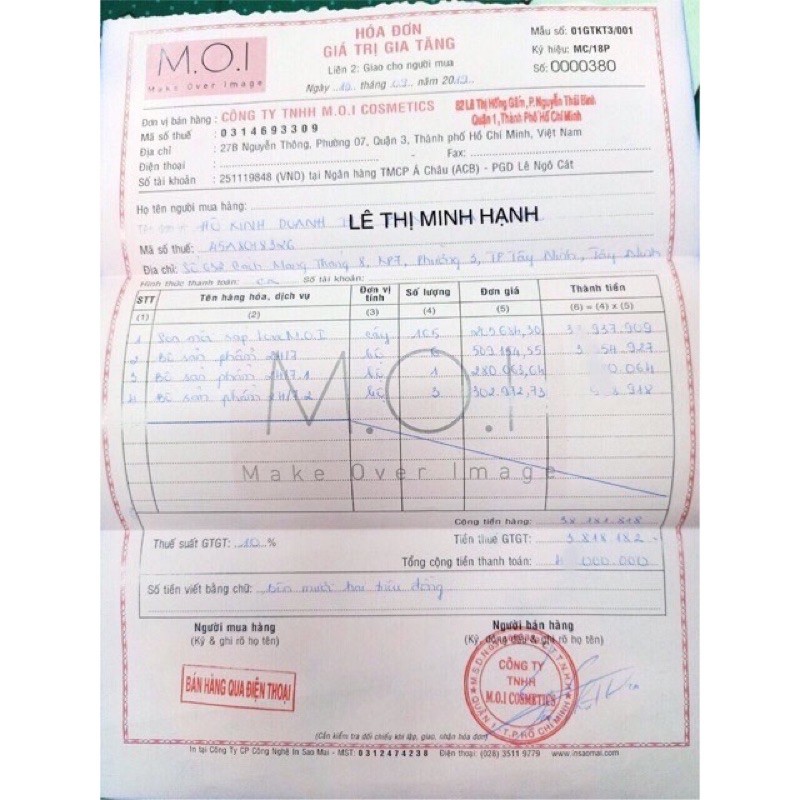 M.O.I
Make Over Image
HÓA ĐƠN
GIÁ TRỊ GIA TĂNG
Liên 2: Giao cho người mua
Ngày tháng năm
Mẫu số: 01GTKT3/001
Ký hiệu: MC/18P
Số: 0000380
Đơn vị bán hàng : CÔNG TY TNHH M.O.I COSMETICS
82 Lê Thị Hồng Gấm, P.Nguyễn Thái Bình
Quận 1, Thành Phố Hồ Chí Minh
Mã số thuế : 0314693309
Địa chỉ : 27B Nguyễn Thông, Phường 07, Quận 3, Thành phố Hồ Chí Minh, Việt Nam
Điện thoại : Fax:
Số tài khoản : 251119848 (VND) tại Ngân hàng TMCP Á Châu (ACB) - PGD Lê Ngô Cát
Họ tên người mua hàng:
HỘ KINH DOANH LÊ THỊ MINH HẠNH
Mã số thuế:
Địa chỉ: Số Cách Mạng Tháng 8, KP7, Phường 3, TP Tây Ninh, Tây Ninh
Hình thức thanh toán: Số tài khoản:
STT Tên hàng hóa, dịch vụ Đơn vị tính Số lượng Đơn giá Thành tiền
(1) (2) (3) (4) (5) (6) = (4) x (5)
1 Son M.O.I cây 165
2 Bộ sản phẩm 2H/7 bộ 6 509 154,55
3 Bộ sản phẩm 2H/7.1 bộ 1 280 063,64
4 Bộ sản phẩm 2H/7.2 bộ 3 302 972,73
M.O.I
Make Over Image
Cộng tiền hàng: 38.181.818
Thuế suất GTGT: 10 % Tiền thuế GTGT: 3.818.182
Tổng cộng tiền thanh toán: 000.000
Số tiền viết bằng chữ: Bốn mươi hai triệu đồng
Người mua hàng
(Ký & ghi rõ họ tên)
Người bán hàng
(Ký, đóng dấu & ghi rõ họ tên)
BÁN HÀNG QUA ĐIỆN THOẠI
CÔNG TY
TNHH
M.O.I COSMETICS
QUẬN 1 - T.P. HỒ CHÍ MINH
(Cần kiểm tra đối chiếu khi lập, giao, nhận hóa đơn)
In tại Công Ty CP Công Nghệ In Sao Mai - MST: 0312474238 Điện thoại: (028) 3511 9779 www.insaomai.com